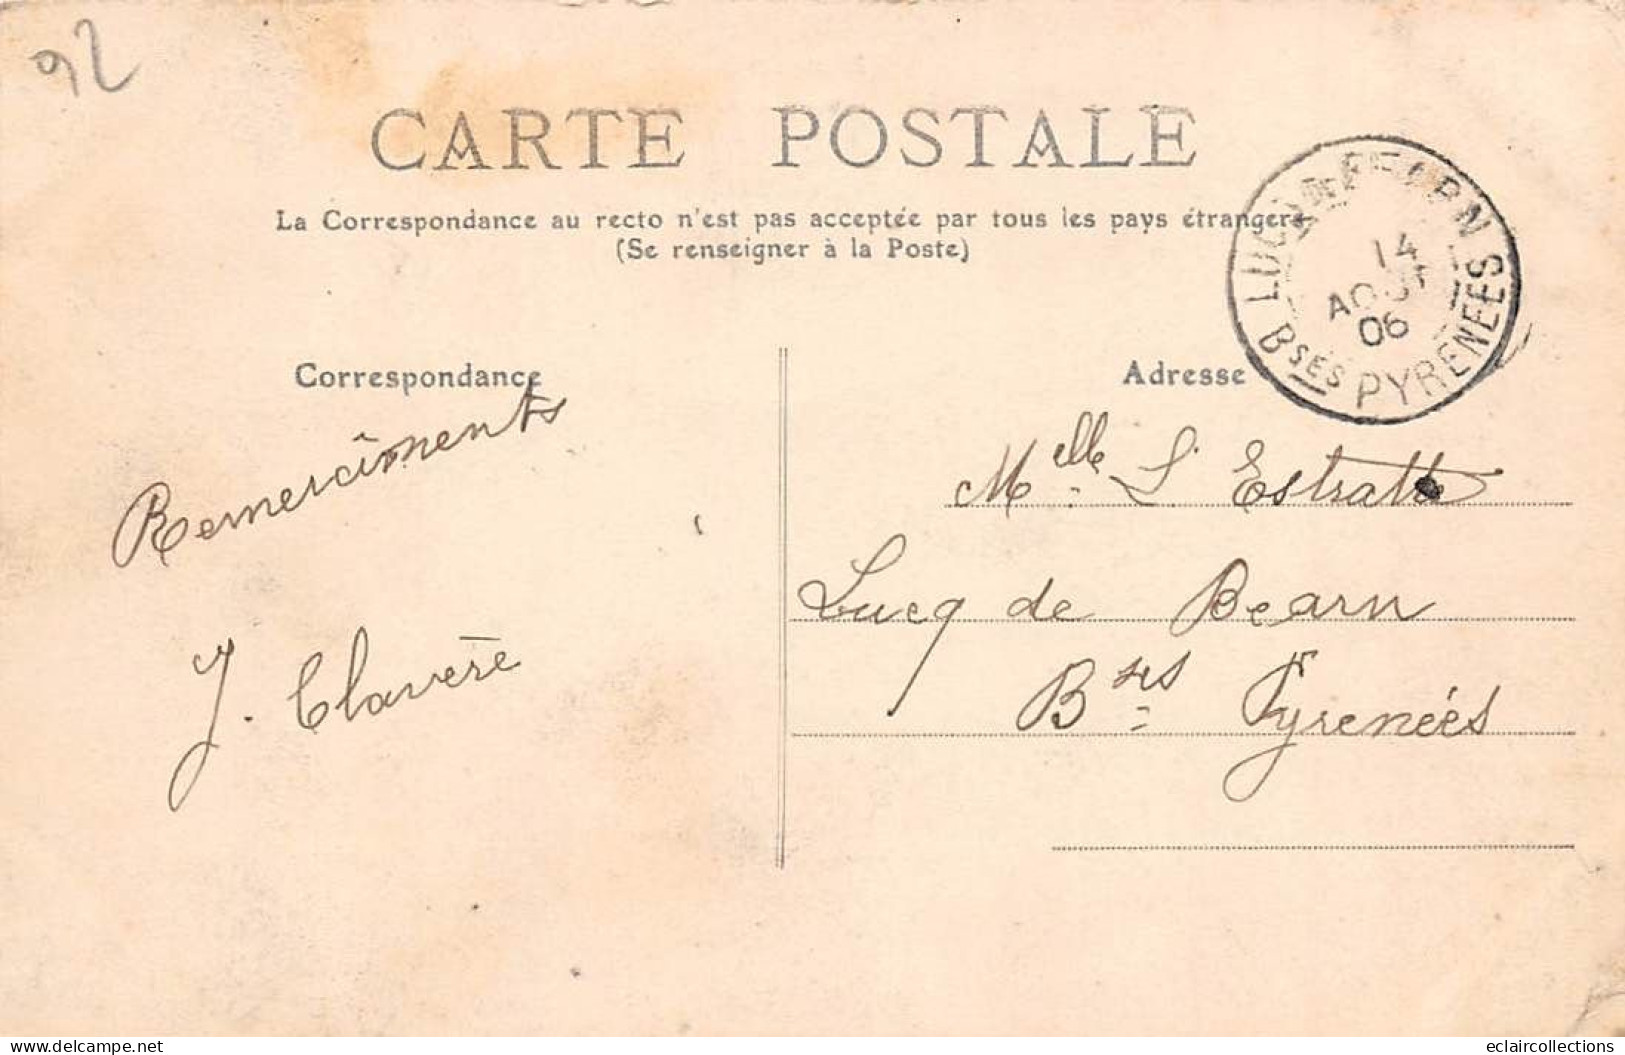 92
CARTE POSTALE
La Correspondance au recto n'est pas acceptée par tous les pays étrangers
(Se renseigner à la Poste)
LUCQ DE BEARN
14
AOUT
06
Bses PYRENEES
Correspondance
Remerciments
J. Clavère
Adresse
Melle
Lucq de Bearn
Bses Pyrenéés
Delcampe.net
eclaircollections